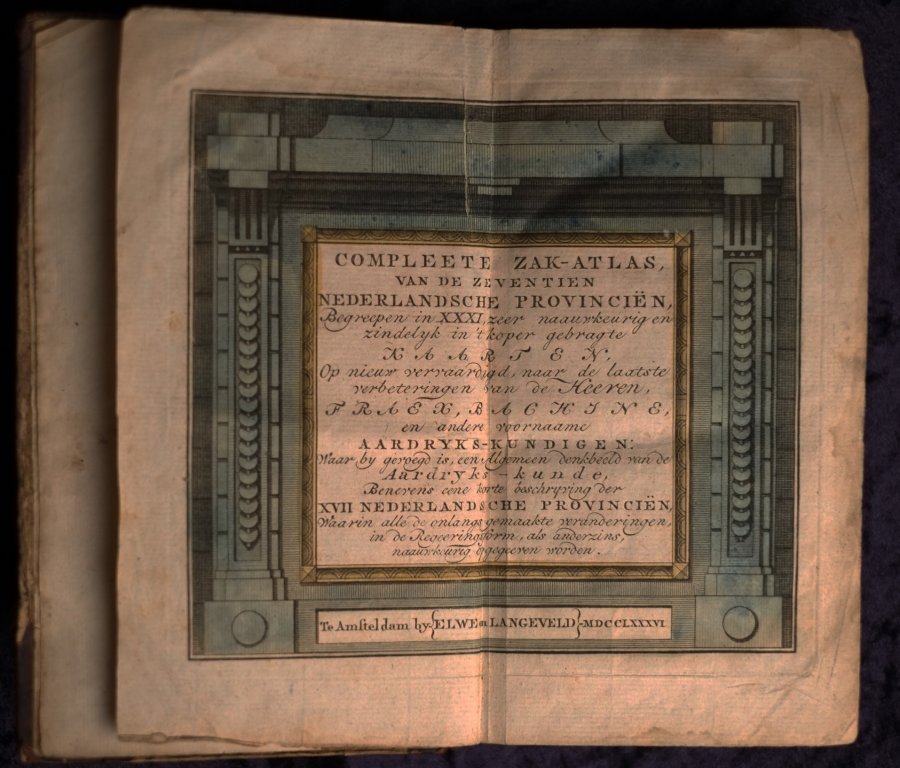 COMPLEETE ZAK-ATLAS,
VAN DE ZEVENTIEN
NEDERLANDSCHE PROVINCIËN,
Begreepen in XXXI, zeer naauwkeurig en
zindelyk in 't koper gebragte
KAARTEN,
Op nieuw vervaardigd, naar de laatste
verbeteringen van de Heeren,
FRAEX, BACHINE,
en andere voornaame
AARDRYKS-KUNDIGEN:
Waar by gevoegd is, een Algemeen denkbeeld van de
Aardryks-kunde,
Benevens eene korte beschryving der
XVII NEDERLANDSCHE PROVINCIËN,
Waarin alle de onlangs gemaakte veranderingen,
in de Regeeringsvorm, als anderzins,
naauwkeurig opgegeeven worden.
Te Amsteldam by {ELWE en LANGEVELD} MDCCLXXXVI